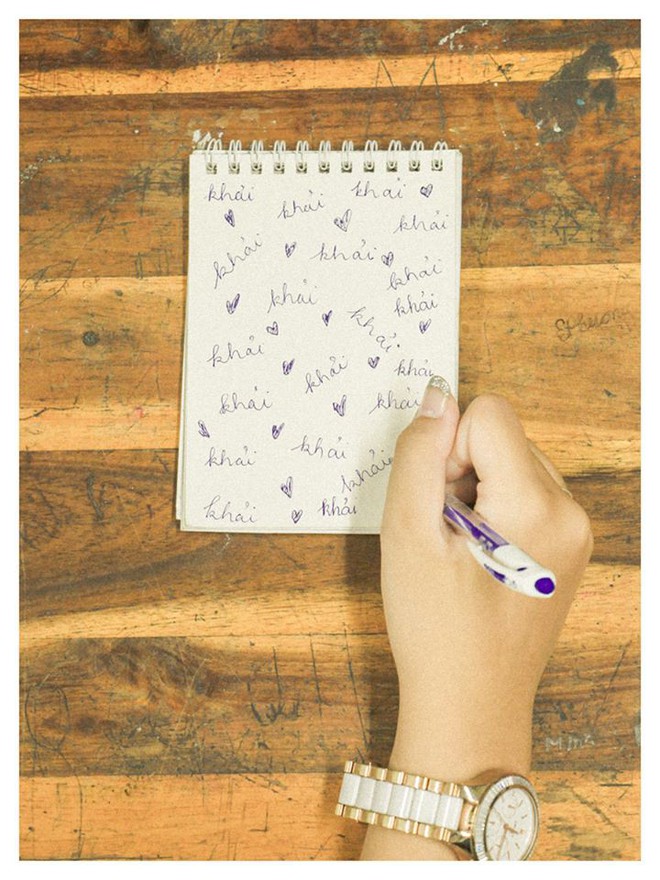 khải khải khải
khải
khải khải
khải
khải khải
khải
khải
khải khải
khải khải
khải khải
khải
khải khải